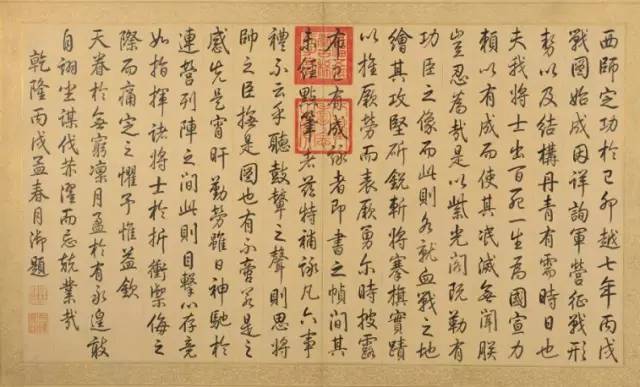 西師定功於己卯越七年丙戌
戰圖始成因詳詢軍營征戰形
勢以及結構丹青有需時日也
夫我將士出百死一生為國宣力
賴以有成而使其泯滅無聞朕
豈忍為哉是以紫光閣既勒有
功臣之像而此則各就血戰之地
繪其攻堅斫銳斬將搴旗實蹟
以推厥勞而表厥勇尔時披露
布已有成詠者即書之幀間其
未經點筆者茲特補詠凡六事
禮不云乎聽鼓鼙之聲則思將
帥之臣撫是圖也有不啻若是之
感先是宵旰勤勞雖日神馳於
連營列陣之間此則目擊心存竟
如指揮諸將士於折衝禦侮之
際而痛定之懼予惟益欽
天眷於無窮凜月盈於有永遑敢
自詡坐謀伐荅濯而忘兢業哉
乾隆丙戌孟春月御題